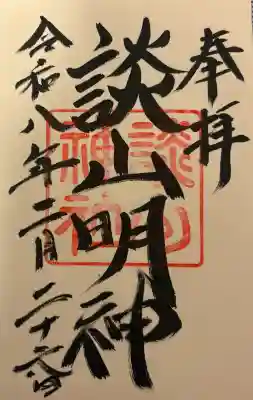 奉拝
談山明神
令和八年二月二十六日
談山神社